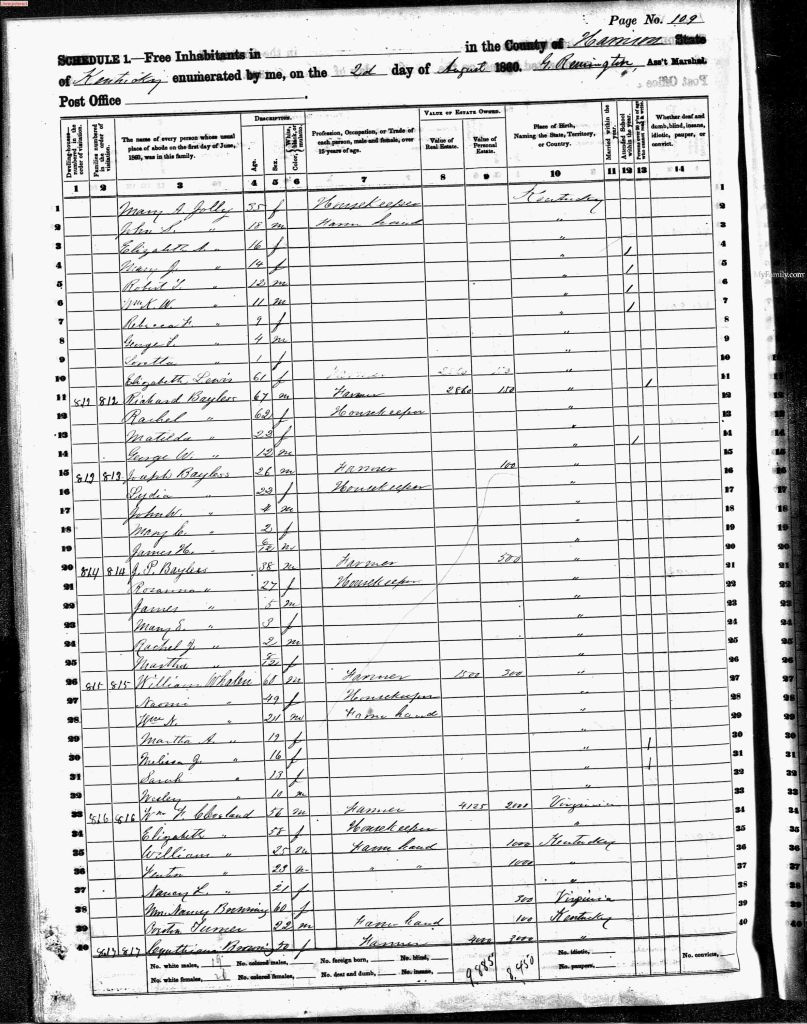 Page No. 109
SCHEDULE 1.—Free Inhabitants in in the County of Harrison State
of Kentucky enumerated by me, on the 2d day of August 1860. G. Remington, Ass't Marshal.
Post Office
Dwelling-houses—numbered in the order of visitation.
Families numbered in the order of visitation.
The name of every person whose usual place of abode on the first day of June, 1860, was in this family.
DESCRIPTION.
Age.
Sex.
Color, White, black, or mulatto.
Profession, Occupation, or Trade of each person, male and female, over 15 years of age.
VALUE OF ESTATE OWNED.
Value of Real Estate.
Value of Personal Estate.
Place of Birth, Naming the State, Territory, or Country.
Married within the year.
Attended School within the year.
Whether deaf and dumb, blind, insane, idiotic, pauper, or convict.
1 2 3 4 5 6 7 8 9 10 11 12 13 14
1 Mary A Jolly 35 f Housekeeper Kentucky 1
2 John S. " 18 m Farm hand " 2
3 Elizabeth A " 16 f " 3
4 Mary J. " 14 f " 1 4
5 Robert " 12 m " 1 5
6 Wm K. W. " 11 m " 1 6
7 Rebecca F. " 9 f " 1 7
8 George " 4 m " 8
9 Loretta " 1 f " 9
10 Elizabeth Lewis 61 f " 10
11 812 812 Richard Bayless 67 m Farmer 2860 150 " 1 11
12 Rachel " 62 f Housekeeper " 12
13 Matilda " 23 f " 13
14 George W. " 12 m " 1 14
15 813 813 Joseph Bayless 26 m Farmer 100 " 15
16 Lydia " 23 f Housekeeper " 16
17 John W. " 4 m " 17
18 Mary E. " 2 f " 18
19 James H. " 6/12 m " 19
20 814 814 J. P. Bayless 38 m Farmer 500 " 20
21 Rosanna " 27 f Housekeeper " 21
22 James " 5 m " 22
23 Mary E. " 3 f " 23
24 Rachel J. " 2 m " 24
25 Martha " /12 f " 25
26 815 815 William Whalen 60 m Farmer 1500 300 " 26
27 Naomi " 49 f Housekeeper " 27
28 Wm N. " 24 m Farm hand " 28
29 Martha A. " 19 f " 29
30 Melissa J. " 16 f " 1 30
31 Sarah " 13 f " 1 31
32 Wesley " 10 m " 32
33 816 816 Wm F. Cleveland 56 m Farmer 4125 2000 Virginia 33
34 Elizabeth " 58 f Housekeeper " 34
35 William " 25 m Farm hand 1000 Kentucky 35
36 Kenton " 23 m " " 1000 " 36
37 Nancy L. " 21 f " 37
38 Mrs Nancy Browning 60 f 300 Virginia 38
39 Turner 22 m Farm hand 100 Kentucky 39
40 817 817 Cynthian Browning 70 f Farmer 4000 3000 " 40
No. white males, 19 No. colored males, No. foreign born, No. blind, 9,985 8,450 No. idiotic, No. convicts,
No. white females, No. colored females, No. deaf and dumb, No. insane, No. paupers,
MyFamily.com